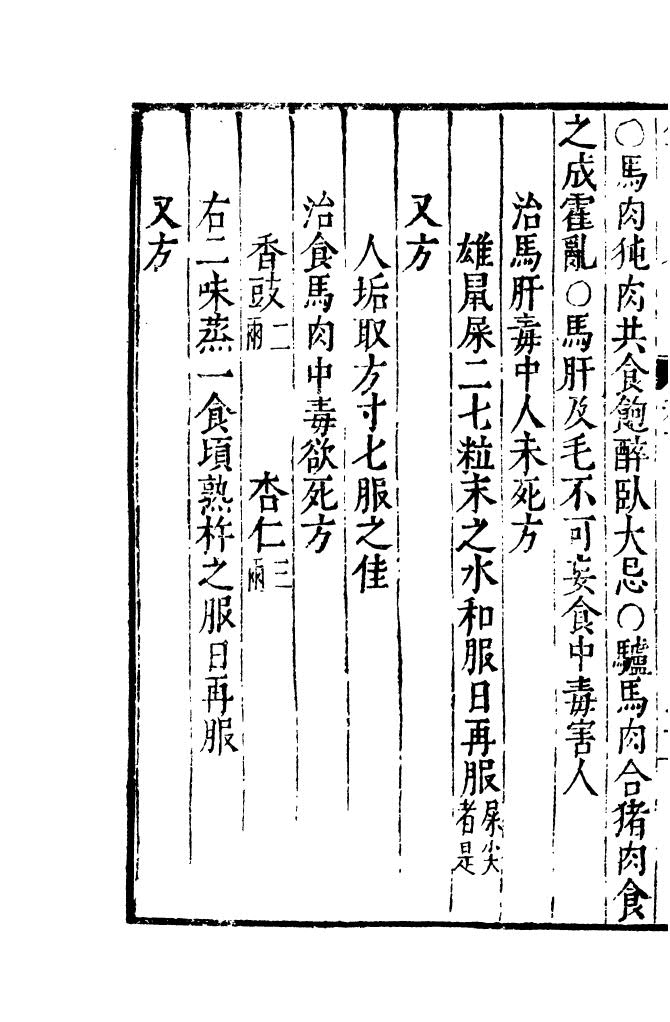 ○馬肉㹠肉共食飽醉臥大忌○驢馬肉合猪肉食
之成霍亂○馬肝及毛不可妄食中毒害人
治馬肝毒中人未死方
雄鼠屎二七粒末之水和服日再服屎尖者是
又方
人垢取方寸七服之佳
治食馬肉中毒欲死方
香豉二兩 杏仁三兩
右二味蒸一食頃熟杵之服日再服
又方